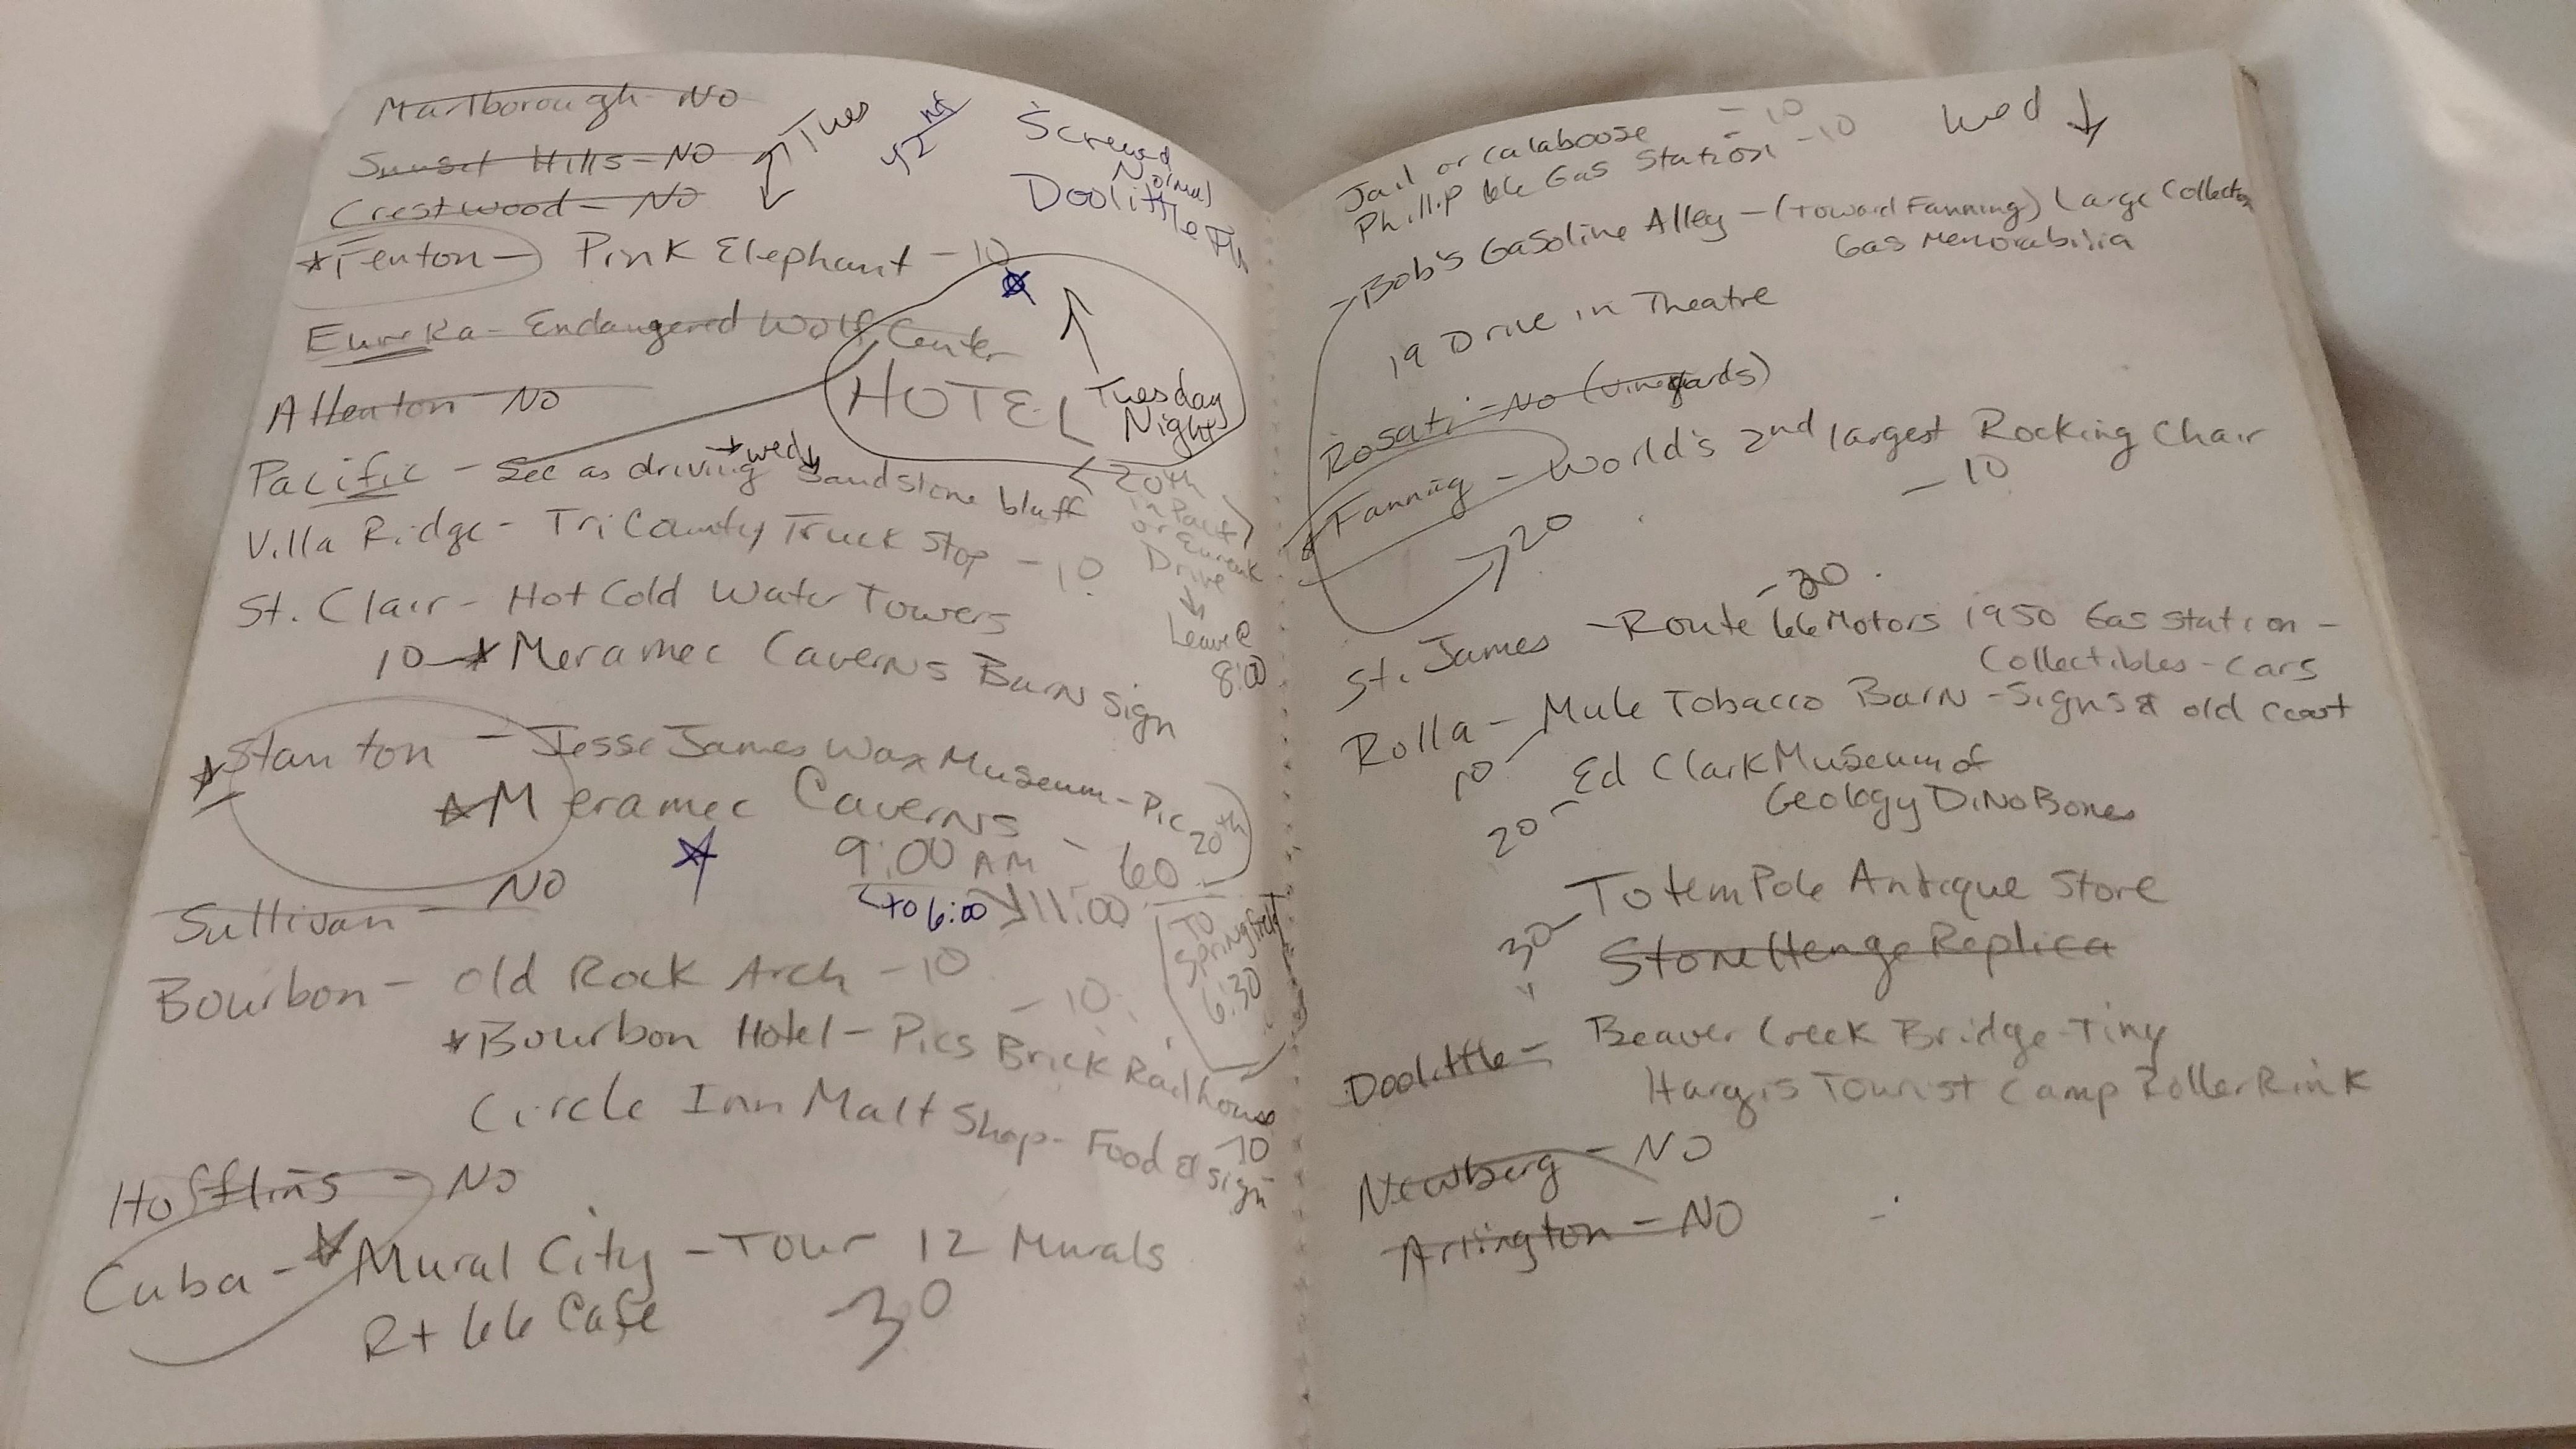 Marlborough - NO
Sunset Hills - NO
Tues
Crestwood - NO
Screwed
Normal
Doolittle
Fenton - Pink Elephant - 10
Eureka - Endangered Wolf Center
HOTEL Tuesday
Night
Allenton NO
wed
Pacific - See as driving Sandstone bluff
20th
in Pacif
or Eureka
Drive
Leave @
8:00
Villa Ridge - Tri County Truck Stop - 10
St. Clair - Hot Cold Water Towers
10 - Meramec Caverns Barn Sign
Stanton - Jesse James Wax Museum - Pic
Meramec Caverns - 60
20th
9:00 AM
to 6:00 11:00
Sullivan - NO
TO
Springfield
6:30
Bourbon - Old Rock Arch - 10
- 10
Bourbon Hotel - Pics Brick Railhouse
Circle Inn Malt Shop - Food & sign
10
Hofflins - NO
Cuba - Mural City - Tour 12 Murals
Rt 66 Cafe 30
Wed
Jail or Calaboose - 10
Phillip 66 Gas Station - 10
Bob's Gasoline Alley - (Toward Fanning) Large Collection
Gas Memorabilia
19 Drive in Theatre
Rosati - NO (Vineyards)
Fanning - World's 2nd largest Rocking Chair
- 10
20
- 30
St. James - Route 66 Motors 1950 Gas Station -
Collectibles - Cars
Rolla - Mule Tobacco Barn - Signs & old
10
Ed Clark Museum of
Geology Dino Bones
20
Totem Pole Antique Store
30
StoneHenge Replica
Doolittle - Beaver Creek Bridge - Tiny
Hargis Tourist Camp Roller Rink
Newberg - NO
Arlington - NO